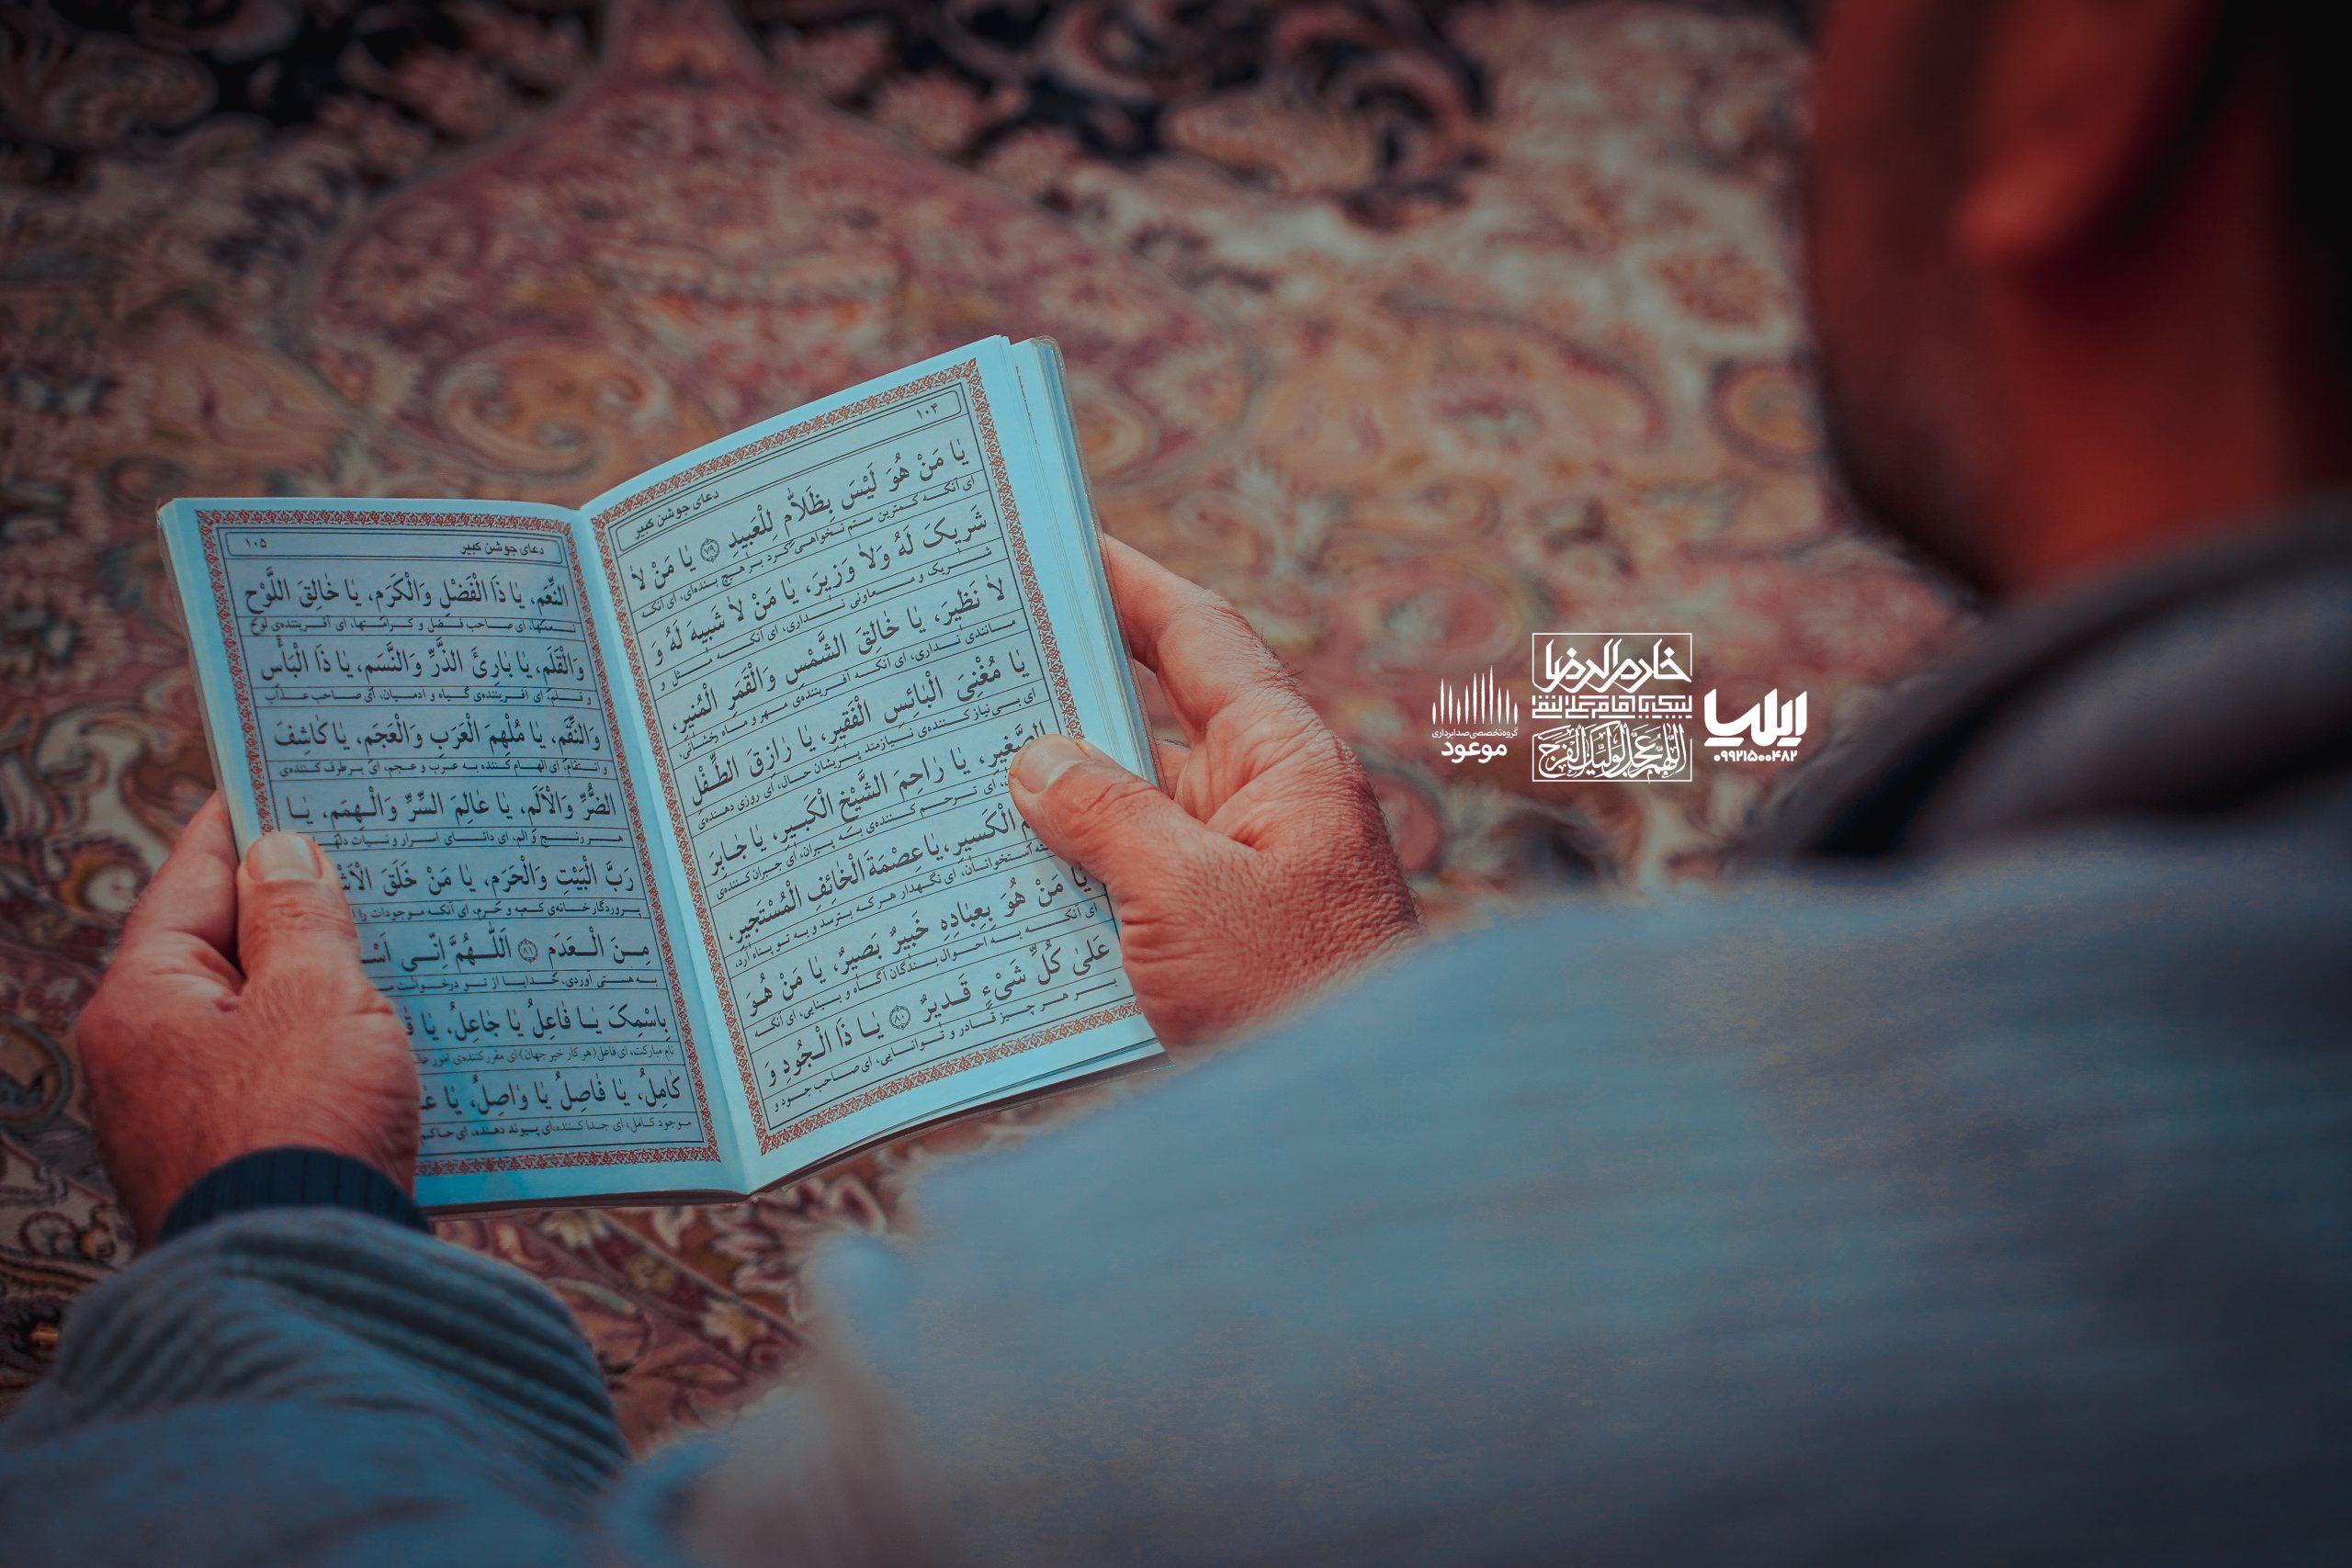 ۱۰۴
دعای جوشن کبیر
یٰا مَنْ هُوَ لَیْسَ بِظَلاّٰمٍ لِلْعَبیدِ ۷۹ یٰا مَنْ لاٰ
ای آنکه کمترین ستم نخواهی کرد بر هیچ بنده‌ای، ای آنکه
شَریکَ لَهُ وَلاٰ وَزیرَ، یٰا مَنْ لاٰ شَبیهَ لَهُ وَ
شریک و معاونی نداری، ای آنکه مثل و
لاٰ نَظیرَ، یٰا خٰالِقَ الشَّمْسِ وَالْقَمَرِ الْمُنیرِ،
مانندی نداری، ای آنکه آفریننده‌ی مهر و ماه رخشانی،
یٰا مُغْنِیَ الْبٰائِسِ الْفَقیرِ، یٰا رٰازِقَ الطِّفْلِ
ای بی‌نیاز کننده‌ی نیازمند پریشان حال، ای روزی دهنده‌ی
الصَّغیرِ، یٰا رٰاحِمَ الشَّیْخِ الْکَبیرِ، یٰا جٰابِرَ
ای ترحم کننده‌ی به پیران، ای جبران کننده‌ی
الْکَسیرِ، یٰا عِصْمَةَ الْخٰائِفِ الْمُسْتَجیرِ،
استخوانان، ای نگهدار هر که بترسد و به تو پناه آرد،
یٰا مَنْ هُوَ بِعِبٰادِهِ خَبیرٌ بَصیرٌ، یٰا مَنْ هُوَ
ای آنکه به احوال بندگان آگاه و بینایی، ای آنکه
عَلیٰ کُلِّ شَیْءٍ قَدیرٌ ۸۰ یٰا ذَا الْجُودِ وَ
بر هر چیز قادر و توانایی، ای صاحب جود و
دعای جوشن کبیر
۱۰۵
النِّعَمِ، یٰا ذَا الْفَضْلِ وَالْکَرَمِ، یٰا خٰالِقَ اللَّوْحِ
نعمتها، ای صاحب فضل و کرامتها، ای آفریننده‌ی لوح
وَالْقَلَمِ، یٰا بٰارِئَ الذَّرِّ وَالنَّسَمِ، یٰا ذَا الْبَأْسِ
و قلم، ای آفریننده‌ی گیاه و آدمیان، ای صاحب عذاب
وَالنِّقَمِ، یٰا مُلْهِمَ الْعَرَبِ وَالْعَجَمِ، یٰا کٰاشِفَ
و انتقام، ای الهام کننده به عرب و عجم، ای برطرف کننده‌ی
الضُّرِّ وَالْأَلَمِ، یٰا عٰالِمَ السِّرِّ وَالْهِمَمِ، یٰا
هر رنج و الم، ای دانای اسرار و نیات دلها
رَبَّ الْبَیْتِ وَالْحَرَمِ، یٰا مَنْ خَلَقَ
پروردگار خانه‌ی کعبه و حرم، ای آنکه موجودات را
مِنَ الْعَدَمِ ۸۱ اَللّٰهُمَّ اِنّی
به هستی آوردی، خدایا از تو درخواست
بِاسْمِکَ یٰا فٰاعِلُ یٰا جٰاعِلُ، یٰا
نام مبارکت، ای فاعل (هر کار خیر جهان) ای مقرر کننده‌ی امور
کٰامِلُ، یٰا فٰاصِلُ یٰا وٰاصِلُ، یٰا
موجود کامل، ای جدا کننده، ای پیوند دهنده، ای حاکم
خادم الرضا
اللهم عجل لولیک الفرج
ایلیا
۰۹۹۲۱۵۰۰۴۸۲
گروه تخصصی صدابرداری
موعود